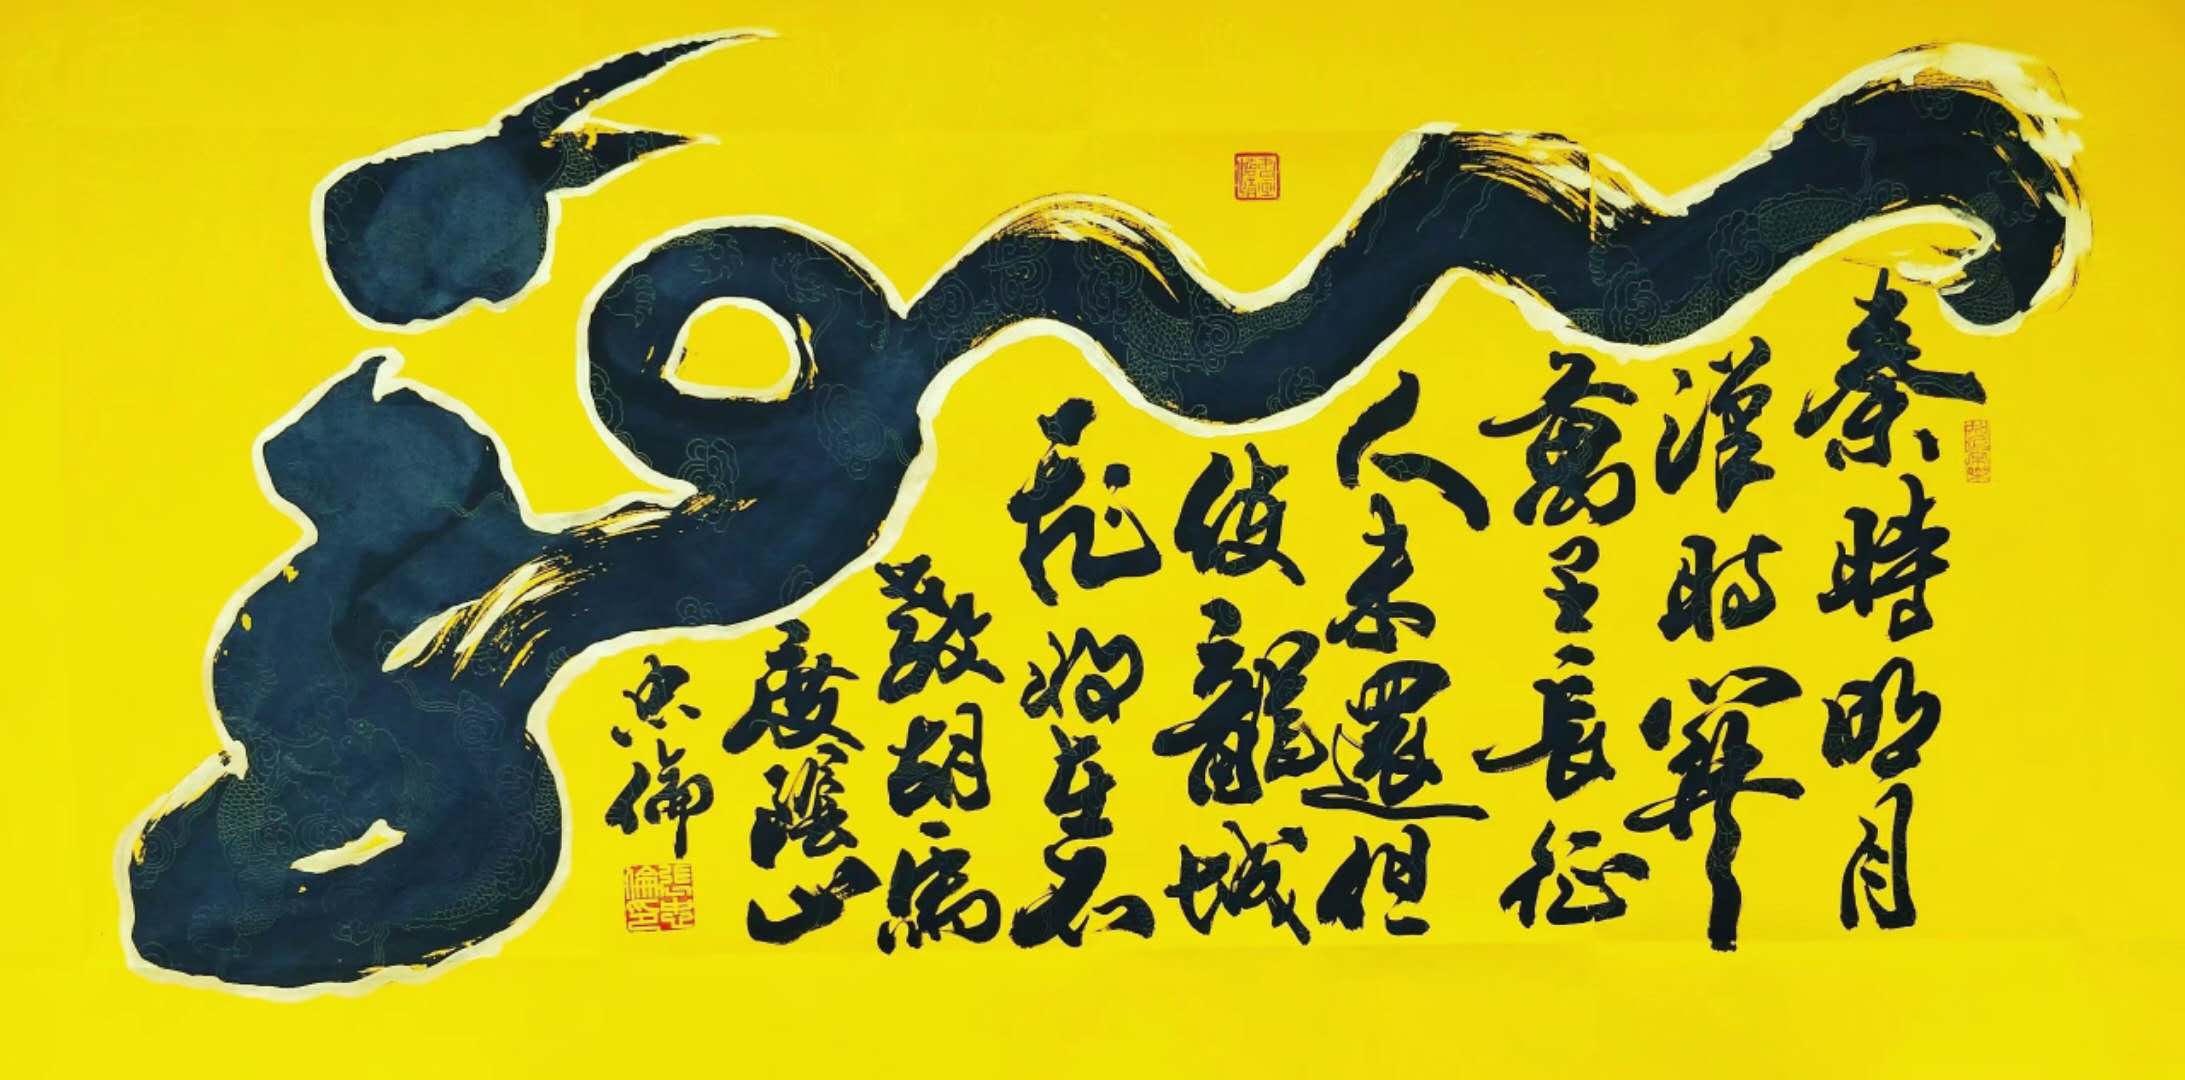 秦時明月
漢時關
萬里長征
人未還但
使龍城
飛將在不
教胡馬
度陰山
忠倫
張忠倫印